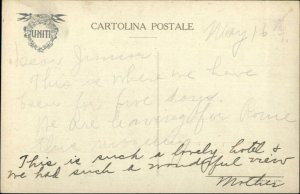 CARTOLINA POSTALE
UNITI
May 16th
Dear Junior
This is where we have
been for five days.
We are leaving for Rome
this morning
This is such a lovely hotel &
we had such a wonderful view
Mother